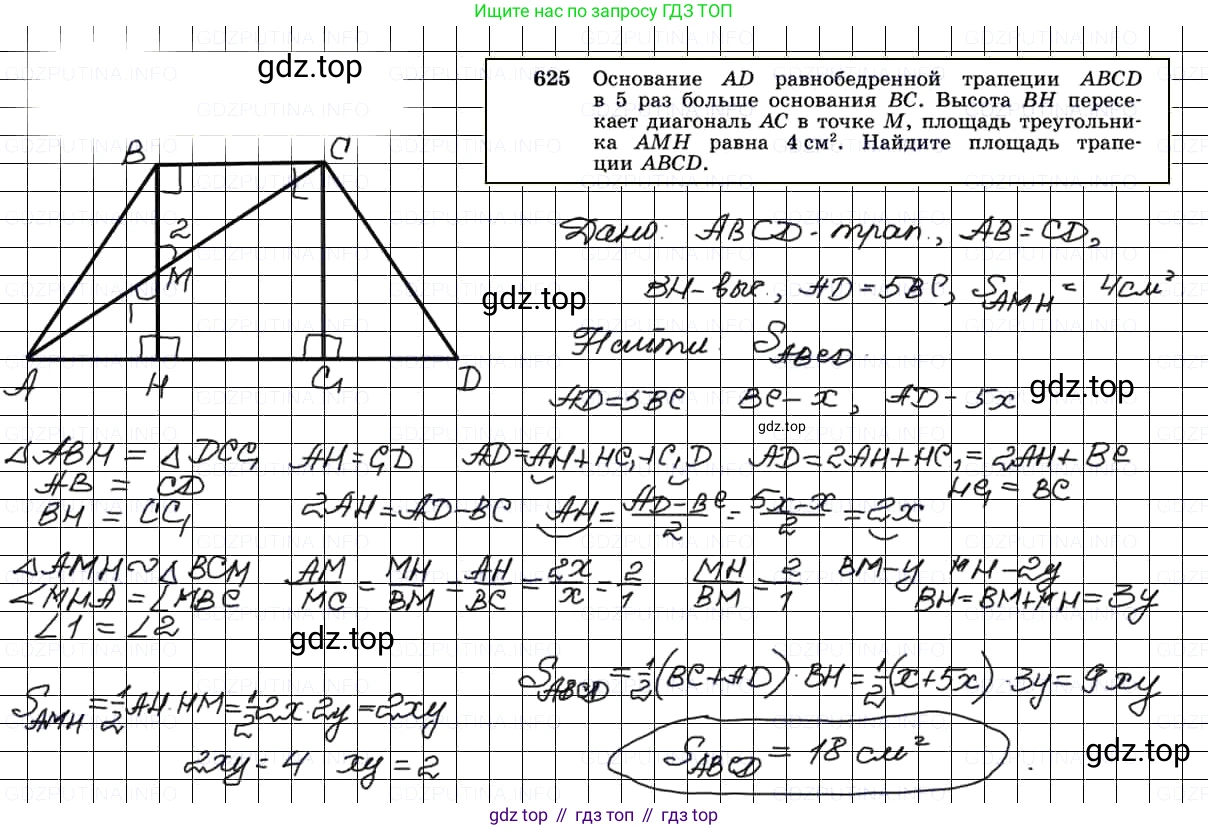 Ищите нас по запросу ГДЗ ТОП
gdz.top
625 Основание AD равнобедренной трапеции ABCD
в 5 раз больше основания BC. Высота BH пересе-
кает диагональ AC в точке M, площадь треугольни-
ка AMH равна 4 см². Найдите площадь трапе-
ции ABCD.
B C
2
M
1
A H C₁ D
Дано: ABCD - трап., AB = CD,
BH - выс., AD = 5BC, S_AMH = 4 см²
gdz.top
Найти: S_ABCD.
AD = 5BC BC - x, AD - 5x
gdz.top
gdz.top
△ABH = △DCC₁ AH = C₁D AD = AH + HC₁ + C₁D AD = 2AH + HC₁ = 2AH + BC
AB = CD HC₁ = BC
BH = CC₁ 2AH = AD - BC AH = (AD - BC)/2 = (5x - x)/2 = 2x
△AMH ~ △BCM AM/MC = MH/BM = AH/BC = 2x/x = 2/1 MH/BM = 2/1 BM - y MH - 2y
∠MHA = ∠MBC BH = BM + MH = 3y
∠1 = ∠2
gdz.top
S_ABCD = 1/2 (BC + AD) · BH = 1/2 (x + 5x) · 3y = 9xy
S_AMH = 1/2 AH · HM = 1/2 2x · 2y = 2xy
2xy = 4 xy = 2
S_ABCD = 18 см².
gdz.top
gdz top // гдз топ // gdz.top
GDZPUTINA.INFO